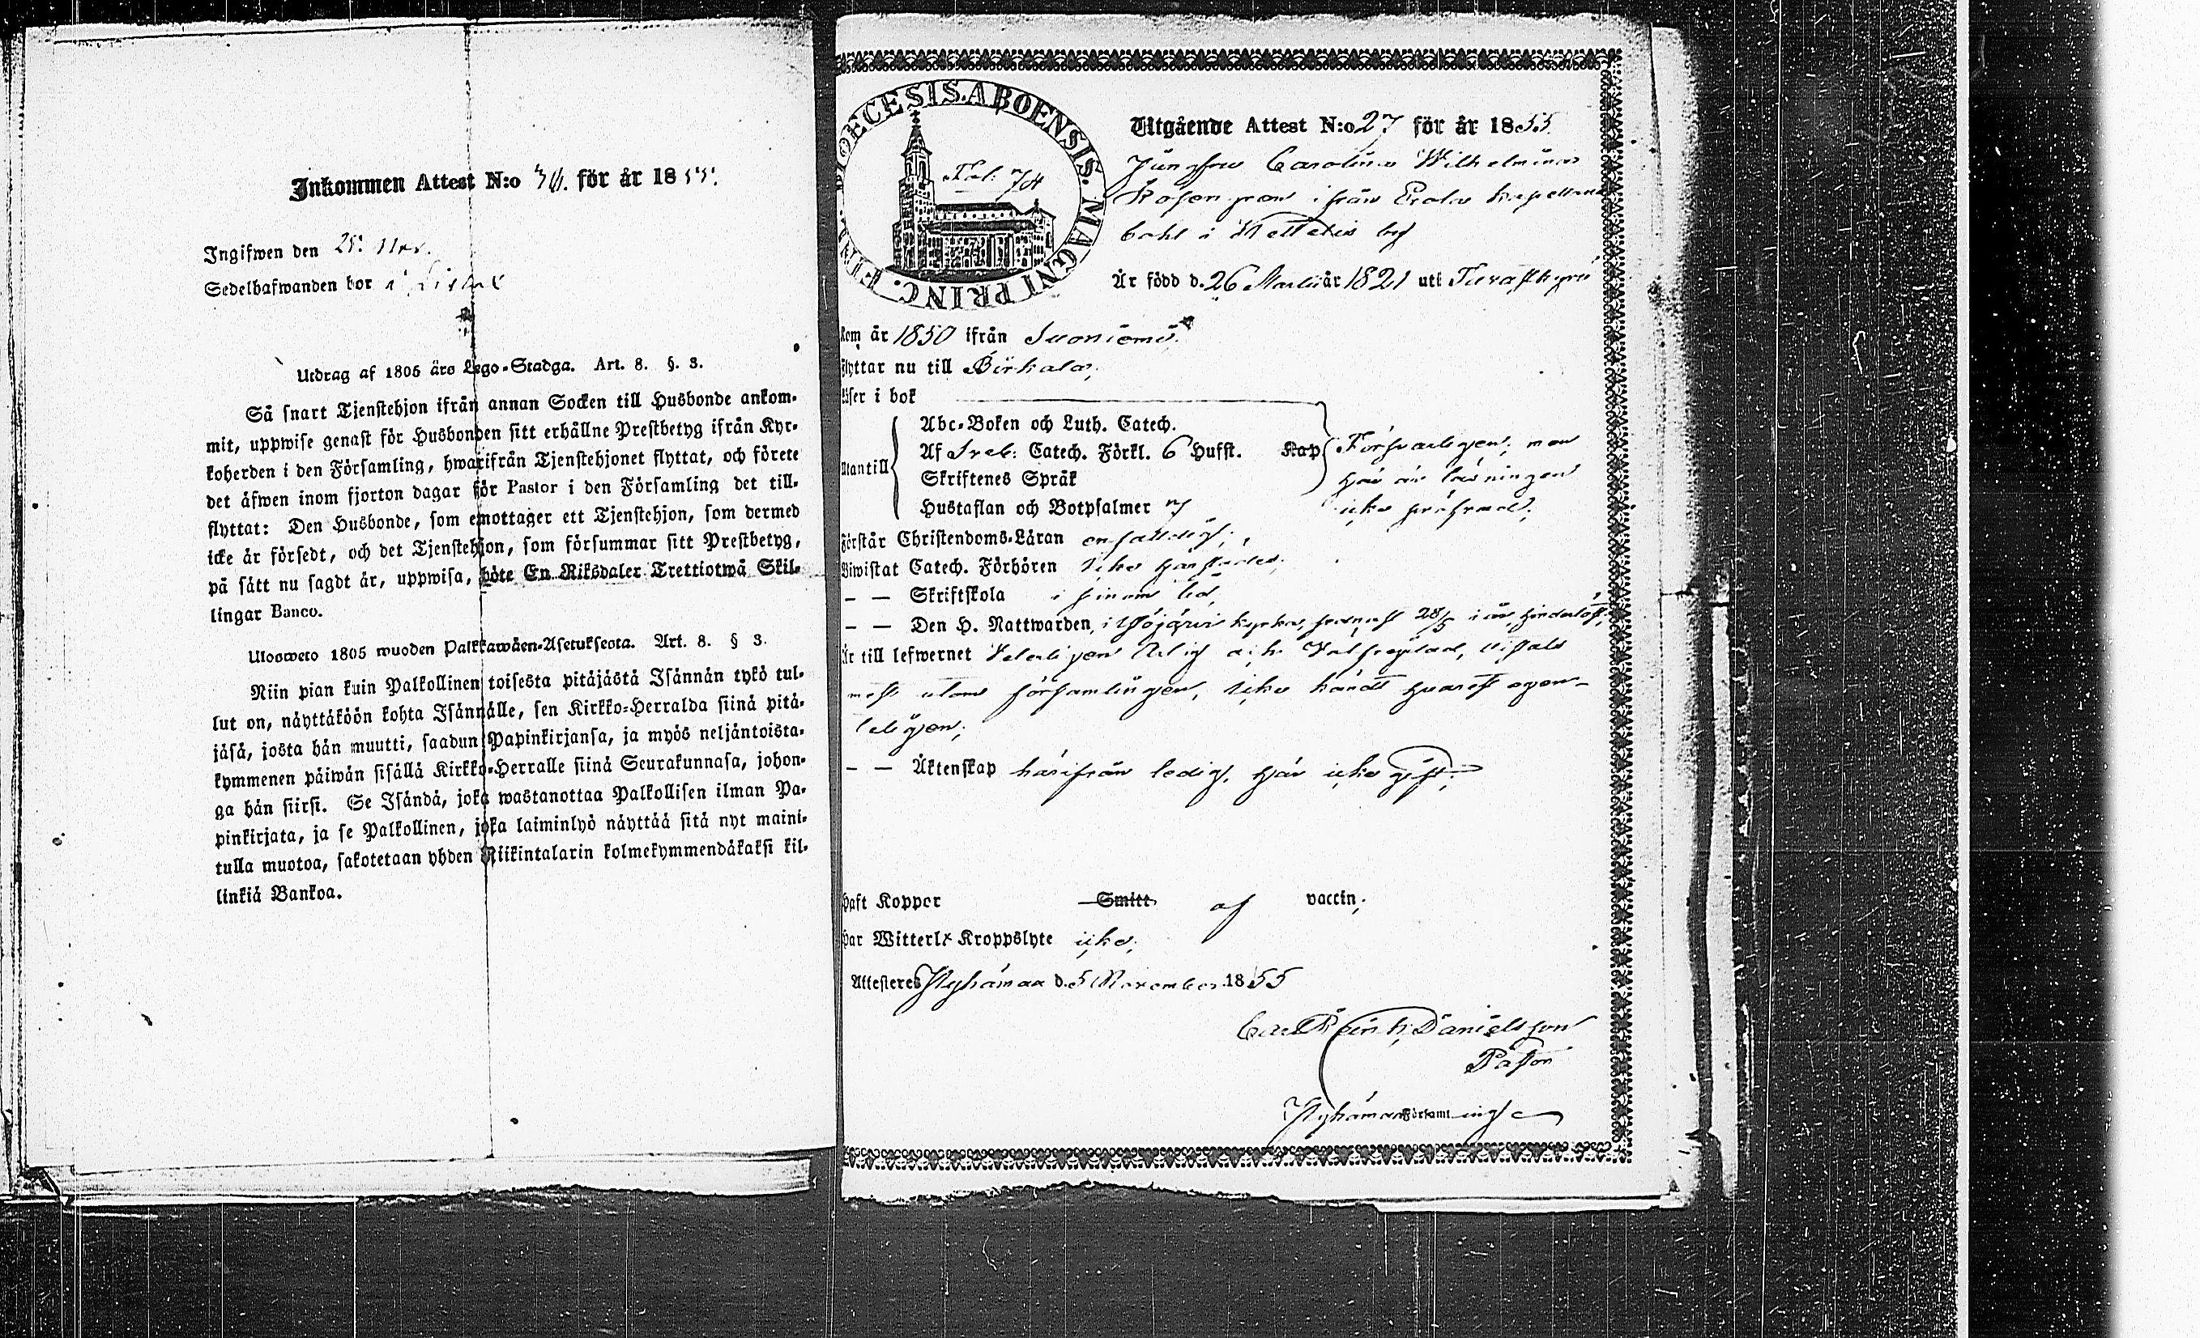 Inkommen Attest N:o för år 1855.
Ingifwen den 25. Nov.
Sedelhafwanden bor i
Utdrag af 1805 års Lego-Stadga. Art. 8. §. 3.
Så snart Tjenstehjon ifrån annan Socken till Husbonde ankom-
mit, uppwise genast för Husbonden sitt erhållne Prestbetyg ifrån Kyr-
koherden i den Församling, hwarifrån Tjenstehjonet flyttat, och förete
det äfwen inom fjorton dagar för Pastor i den Församling det till-
flyttat: Den Husbonde, som emottager ett Tjenstehjon, som dermed
icke är försedt, och det Tjenstehjon, som försummar sitt Prestbetyg,
på sätt nu sagdt är, uppwisa, böte En Riksdaler Trettiotwå Skil-
lingar Banco.
Ulosweto 1805 wuoden Palkkawäen-Asetuksesta. Art. 8. § 3.
Niin pian kuin Palkollinen toisesta pitäjästä Isännän tykö tul-
lut on, näyttäköön kohta Isännälle, sen Kirkko-Herralda siinä pitä-
jäsä, josta hän muutti, saadun Papinkirjansa, ja myös neljäntoista-
kymmenen päiwän sisällä Kirkko-Herralle siinä Seurakunnasa, johon-
ga hän siirsi. Se Isändä, joka wastanottaa Palkollisen ilman Pa-
pinkirjata, ja se Palkollinen, joka laiminlyö näyttää sitä nyt maini-
tulla muotoa, sakotetaan yhden Riikintalarin kolmekymmendäkaksi kil-
linkiä Bankoa.
DIOECESIS. ABOENSIS. MAGNI PRINC. FINL.
Fol. 74
Utgående Attest N:o 27 för år 1855
Jungfru Carolina Wilhelmina
Rosengren ifrån kapellans
bohl i by
Är född d. 26 Martii år 1821 uti Tavastkyrö
kom år 1850 ifrån Suoniemi
flyttar nu till Birkala,
läser i bok
Abc-Boken och Luth. Catech.
Utantill Af Sveb: Catech. Förkl. 6 Hufst. Kap Försvarligen, men
Skriftenes Språk här är läsningen
Hustaflan och Botpsalmer icke pröfvad,
förstår Christendoms-Läran enfaldigt,
Biwistat Catech. Förhören icke
— — Skriftskola i sinom tid,
— — Den H. Nattwarden, i Ylöjärvi kyrka, senast 28/5 i år, hinderlös,
Är till lefwernet ärlig och
mest utom församlingen, icke kändt
— — Äktenskap härifrån ledig, här icke gift,
haft Koppor Smitt af vaccin,
har Witterl. Kroppslyte icke,
Attesteres Nykämaa d. 5 November 1855
Danielsson
Pastor
Församl